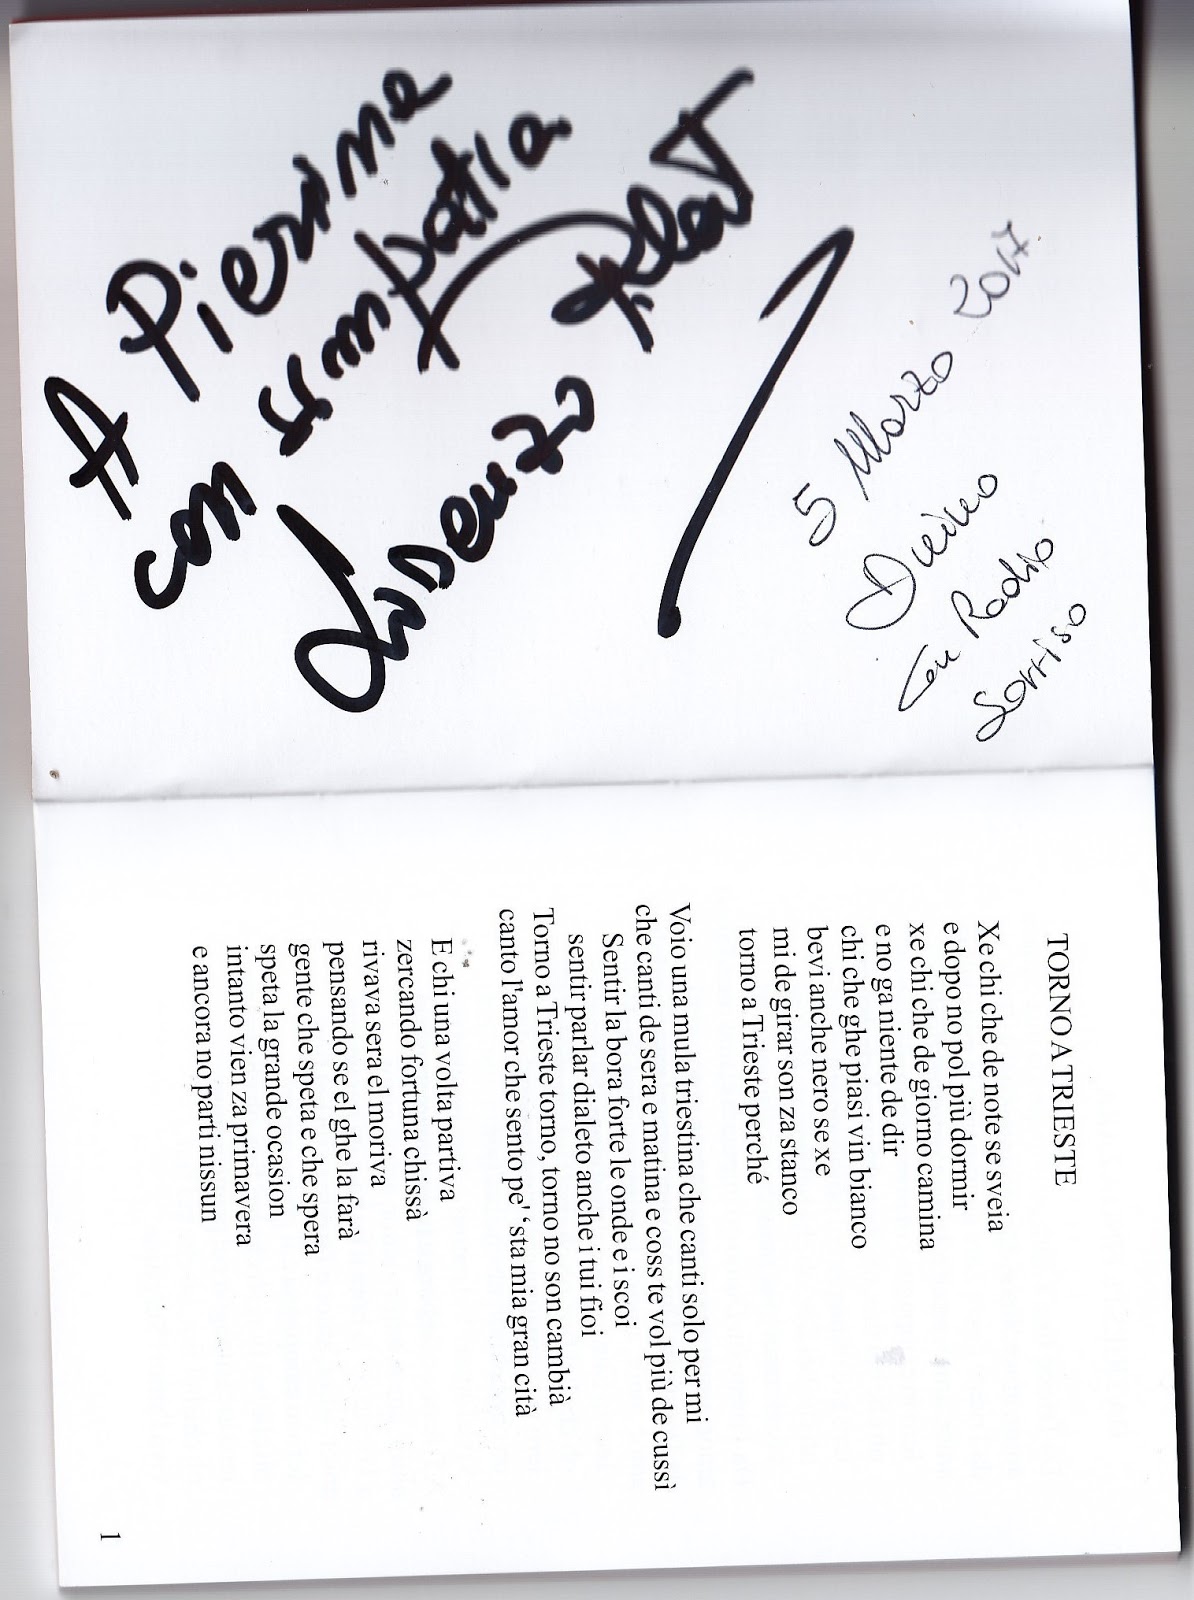 A Pierina
con simpatia
Lorenzo
5 Marzo 2017
Duino
con Radio
Sorriso
TORNO A TRIESTE
Xe chi che de note se sveia
e dopo no pol più dormir
xe chi che de giorno camina
e no ga niente de dir
chi che ghe piasi vin bianco
bevi anche nero se xe
mi de girar son za stanco
torno a Trieste perché
Voio una mula triestina che canti solo per mi
che canti de sera e matina e coss te vol più de cussì
Sentir la bora forte le onde e i scoi
sentir parlar dialeto anche i tui fioi
Torno a Trieste torno, torno no son cambià
canto l'amor che sento pe' ‘sta mia gran cità
E chi una volta partiva
zercando fortuna chissà
rivava sera el moriva
pensando se el ghe la farà
gente che speta e che spera
speta la grande ocasion
intanto vien za primavera
e ancora no parti nissun
1